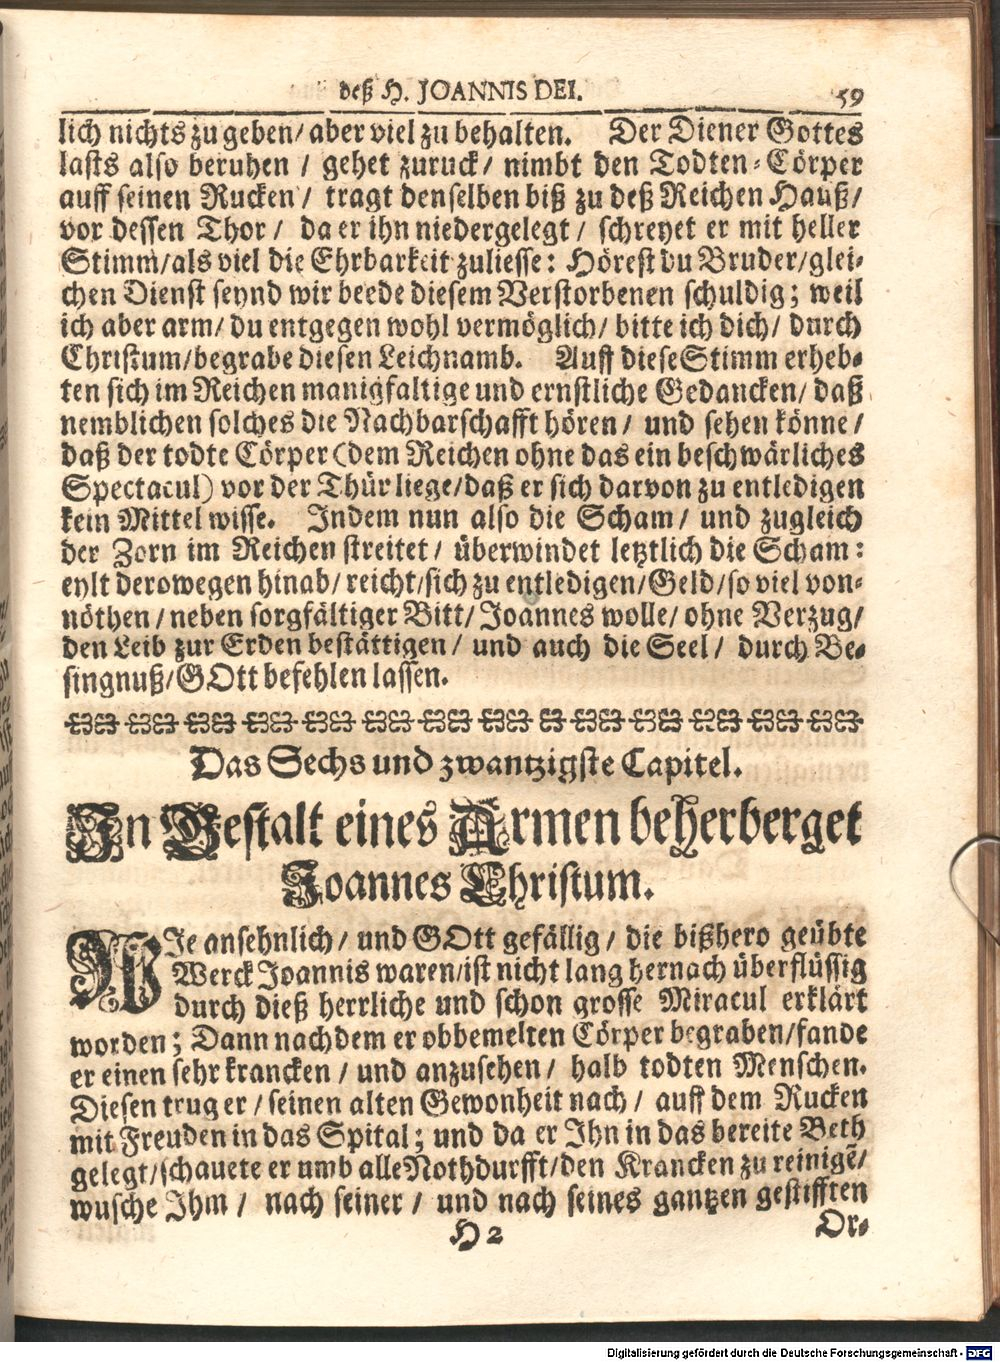 deß H. JOANNIS DEI. 59
lich nichts zu geben/ aber viel zu behalten. Der Diener Gottes
lasts also beruhen / gehet zuruck/ nimbt den Todten-Cörper
auff seinen Rucken / tragt denselben biß zu deß Reichen Hauß/
vor dessen Thor / da er ihn niedergelegt / schreyet er mit heller
Stimm/als viel die Ehrbarkeit zuliesse: Hörest du Bruder/glei-
chen Dienst seynd wir beede diesem Verstorbenen schuldig; weil
ich aber arm/ du entgegen wohl vermöglich/ bitte ich dich/ durch
Christum/begrabe diesen Leichnamb. Auff diese Stimm erheb-
ten sich im Reichen manigfaltige und ernstliche Gedancken/ daß
nemblichen solches die Nachbarschafft hören / und sehen könne /
daß der todte Cörper (dem Reichen ohne das ein beschwärliches
Spectacul) vor der Thür liege/daß er sich darvon zu entledigen
kein Mittel wisse. Indem nun also die Scham/ und zugleich
der Zorn im Reichen streitet / überwindet letztlich die Scham:
eylt derowegen hinab/ reicht/sich zu entledigen/Geld/so viel von-
nöthen / neben sorgfältiger Bitt/ Joannes wolle/ ohne Verzug/
den Leib zur Erden bestättigen / und auch die Seel / durch Be-
singnuß/GOtt befehlen lassen.
Das Sechs und zwantzigste Capitel.
In Gestalt eines Armen beherberget
Joannes Christum.
WIe ansehnlich / und GOtt gefällig / die bißhero geübte
Werck Joannis waren/ist nicht lang hernach überflüssig
durch dieß herrliche und schon grosse Miracul erklärt
worden; Dann nachdem er obbemelten Cörper begraben/fande
er einen sehr krancken / und anzusehen / halb todten Menschen.
Diesen trug er / seinen alten Gewonheit nach / auff dem Rucken
mit Freuden in das Spital; und da er Ihn in das bereite Beth
gelegt/schauete er umb alle Nothdurfft/den Krancken zu reinigẽ/
wusche Ihm / nach seiner / und nach seines gantzen gestifften
H 2 Or-
Digitalisierung gefördert durch die Deutsche Forschungsgemeinschaft - DFG